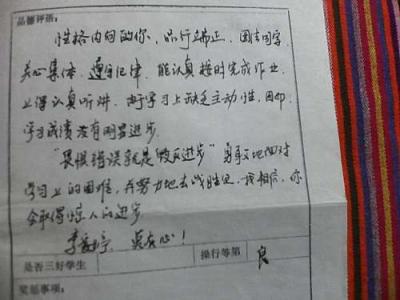 品德评语：
性格内向的你，品行端正，团结同学，
关心集体，遵守纪律，能认真按时完成作业，
上课认真听讲，由于学习上缺乏主动性，因而
学习成绩没有明显进步。
“畏惧错误就是毁灭进步”勇敢地面对
学习上的困难，并努力地去战胜它，我相信，你
会取得惊人的进步。
贵在心！
是否三好学生
操行等第
良
奖惩事项：